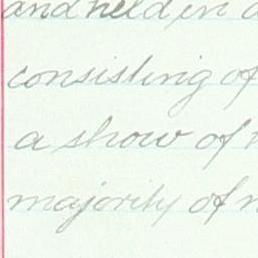 and held in
consisting of
a show of
majority of